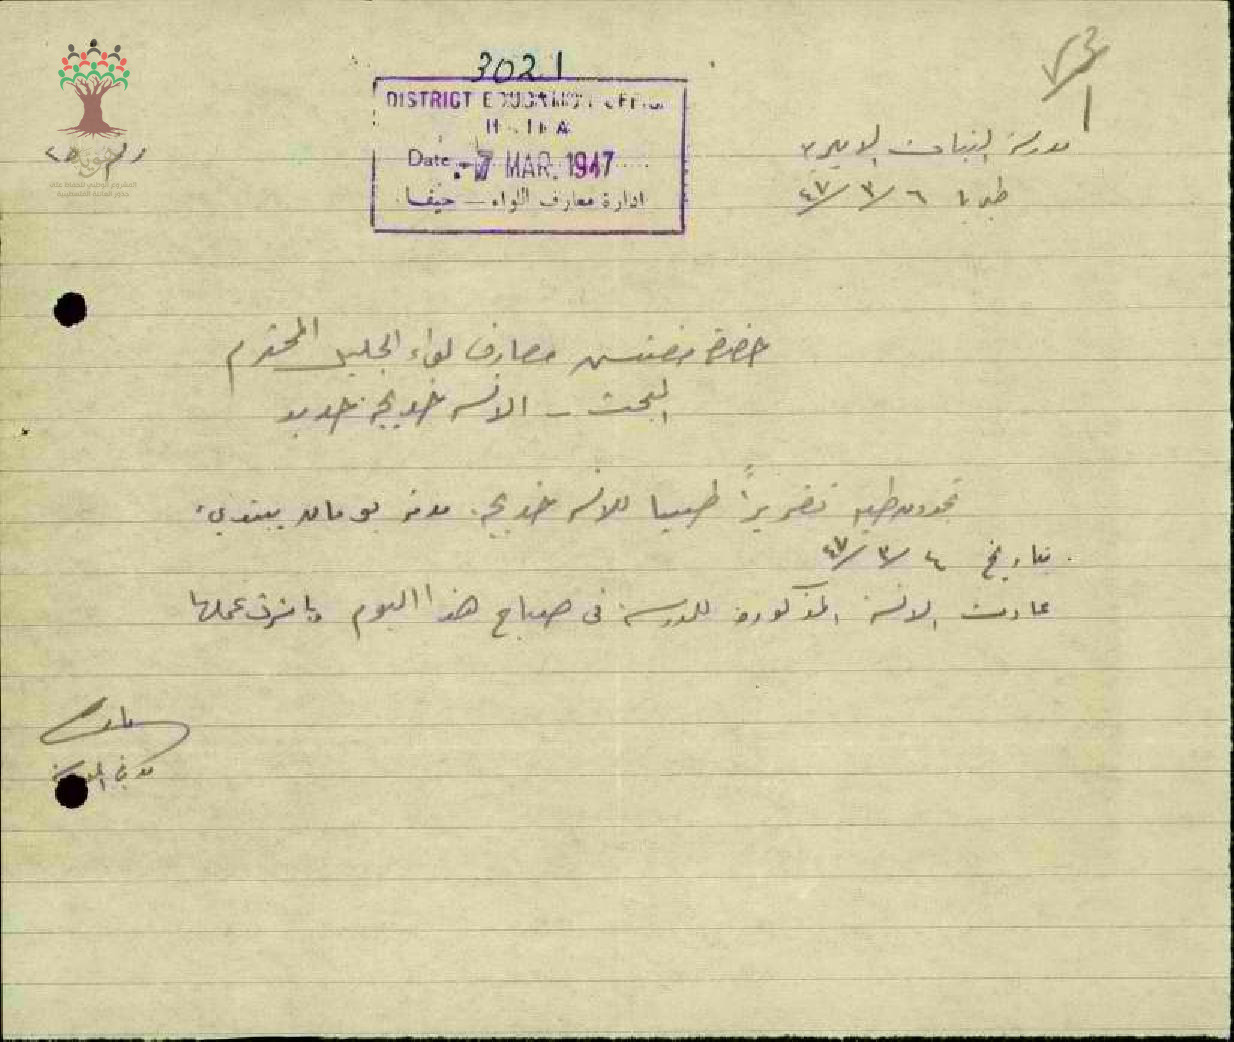 3021
DISTRICT EDUCATION OFFICE
HAIFA
Date 7 MAR. 1947
ادارة معارف اللواء — حيفا
مدرسة البنات الاميرية
طبريا ٦/٣/٤٧
حضرة مفتش معارف لواء الجليل المحترم
البحث - الانسة خديجة حديد
تجدون طيه تقريراً طبيا للانسة خديجة. مدته يومان يبتدئ
بتاريخ ٤/٣/٤٧
عادت الانسة المذكورة للمدرسة في صباح هذا اليوم وباشرت عملها